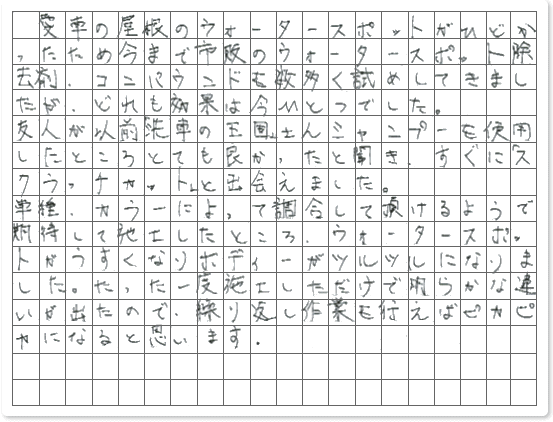 愛車の屋根のウォータースポットがひどか
ったため今まで市販のウォータースポット除
去剤、コンパウンドを数多く試めしてきまし
たが、どれも効果は今ひとつでした。
友人が以前洗車の王国さんシャンプーを使用
したところとても良かったと聞き、すぐに「ス
クラッチカット」と出会えました。
車種、カラーによって調合して頂けるようで
期待して施工したところ、ウォータースポッ
トがうすくなりボディーがツルツルになりま
した。たった一度施工しただけで明らかな違
いが出たので、繰り返し作業を行えばピカピ
カになると思います。